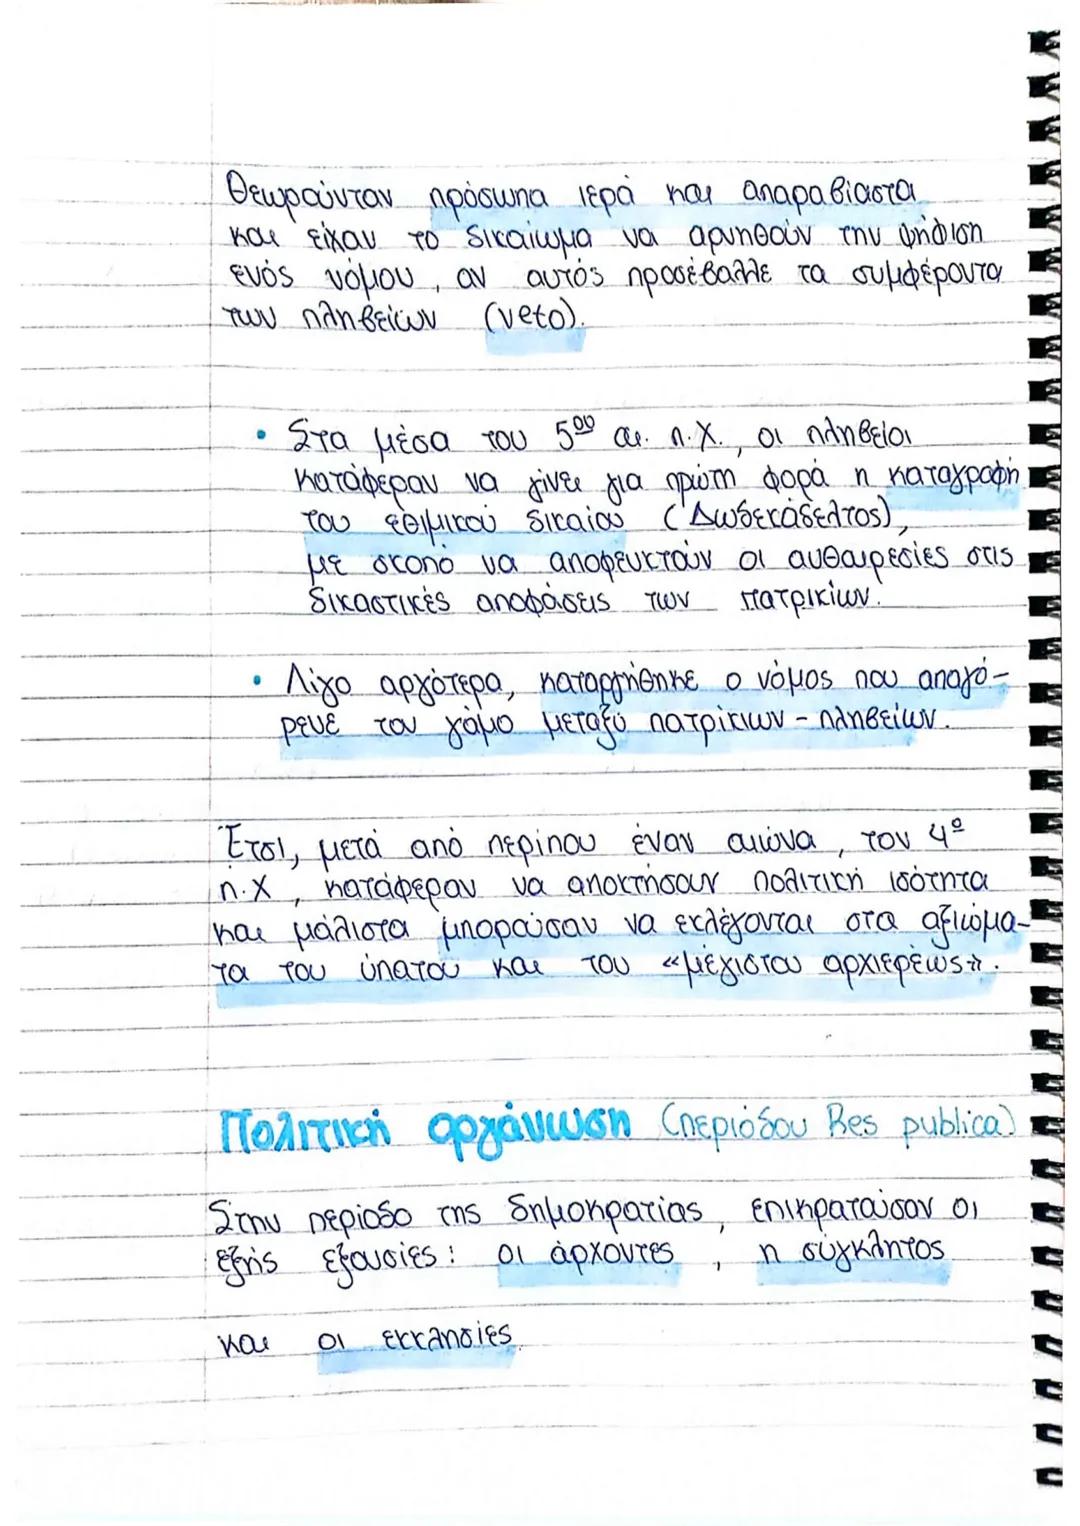 Θεωρούνταν πρόσωπα ιερά και απαραβίαστα
και είχαν το δικαίωμα να αρνηθούν την ψήφιση
ενός νόμου, αν αυτός προσέβαλλε τα συμφέροντα
των πληβείων (veto).
• Στα μέσα του 5ου αι. π.Χ., οι πληβείοι
κατάφεραν να γίνει για πρώτη φορά η καταγραφή
του εθιμικού δικαίου (Δωδεκάδελτος),
με σκοπό να αποφευκτούν οι αυθαιρεσίες στις
δικαστικές αποφάσεις των πατρικίων.
• Λίγο αργότερα, καταργήθηκε ο νόμος που απαγό-
ρευε τον γάμο μεταξύ πατρικίων - πληβείων.
Έτσι, μετά από περίπου έναν αιώνα, τον 4º
π.Χ, κατάφεραν να αποκτήσουν πολιτική ισότητα
και μάλιστα μπορούσαν να εκλέγονται στα αξιώμα-
τα του ύπατου και του «μέγιστου αρχιερέως».
Πολιτική οργάνωση (περιόδου Res publica)
Στην περίοδο της δημοκρατίας, επικρατούσαν οι
εξής εξουσίες: οι άρχοντες, η σύγκλητος
και οι εκκλησίες.